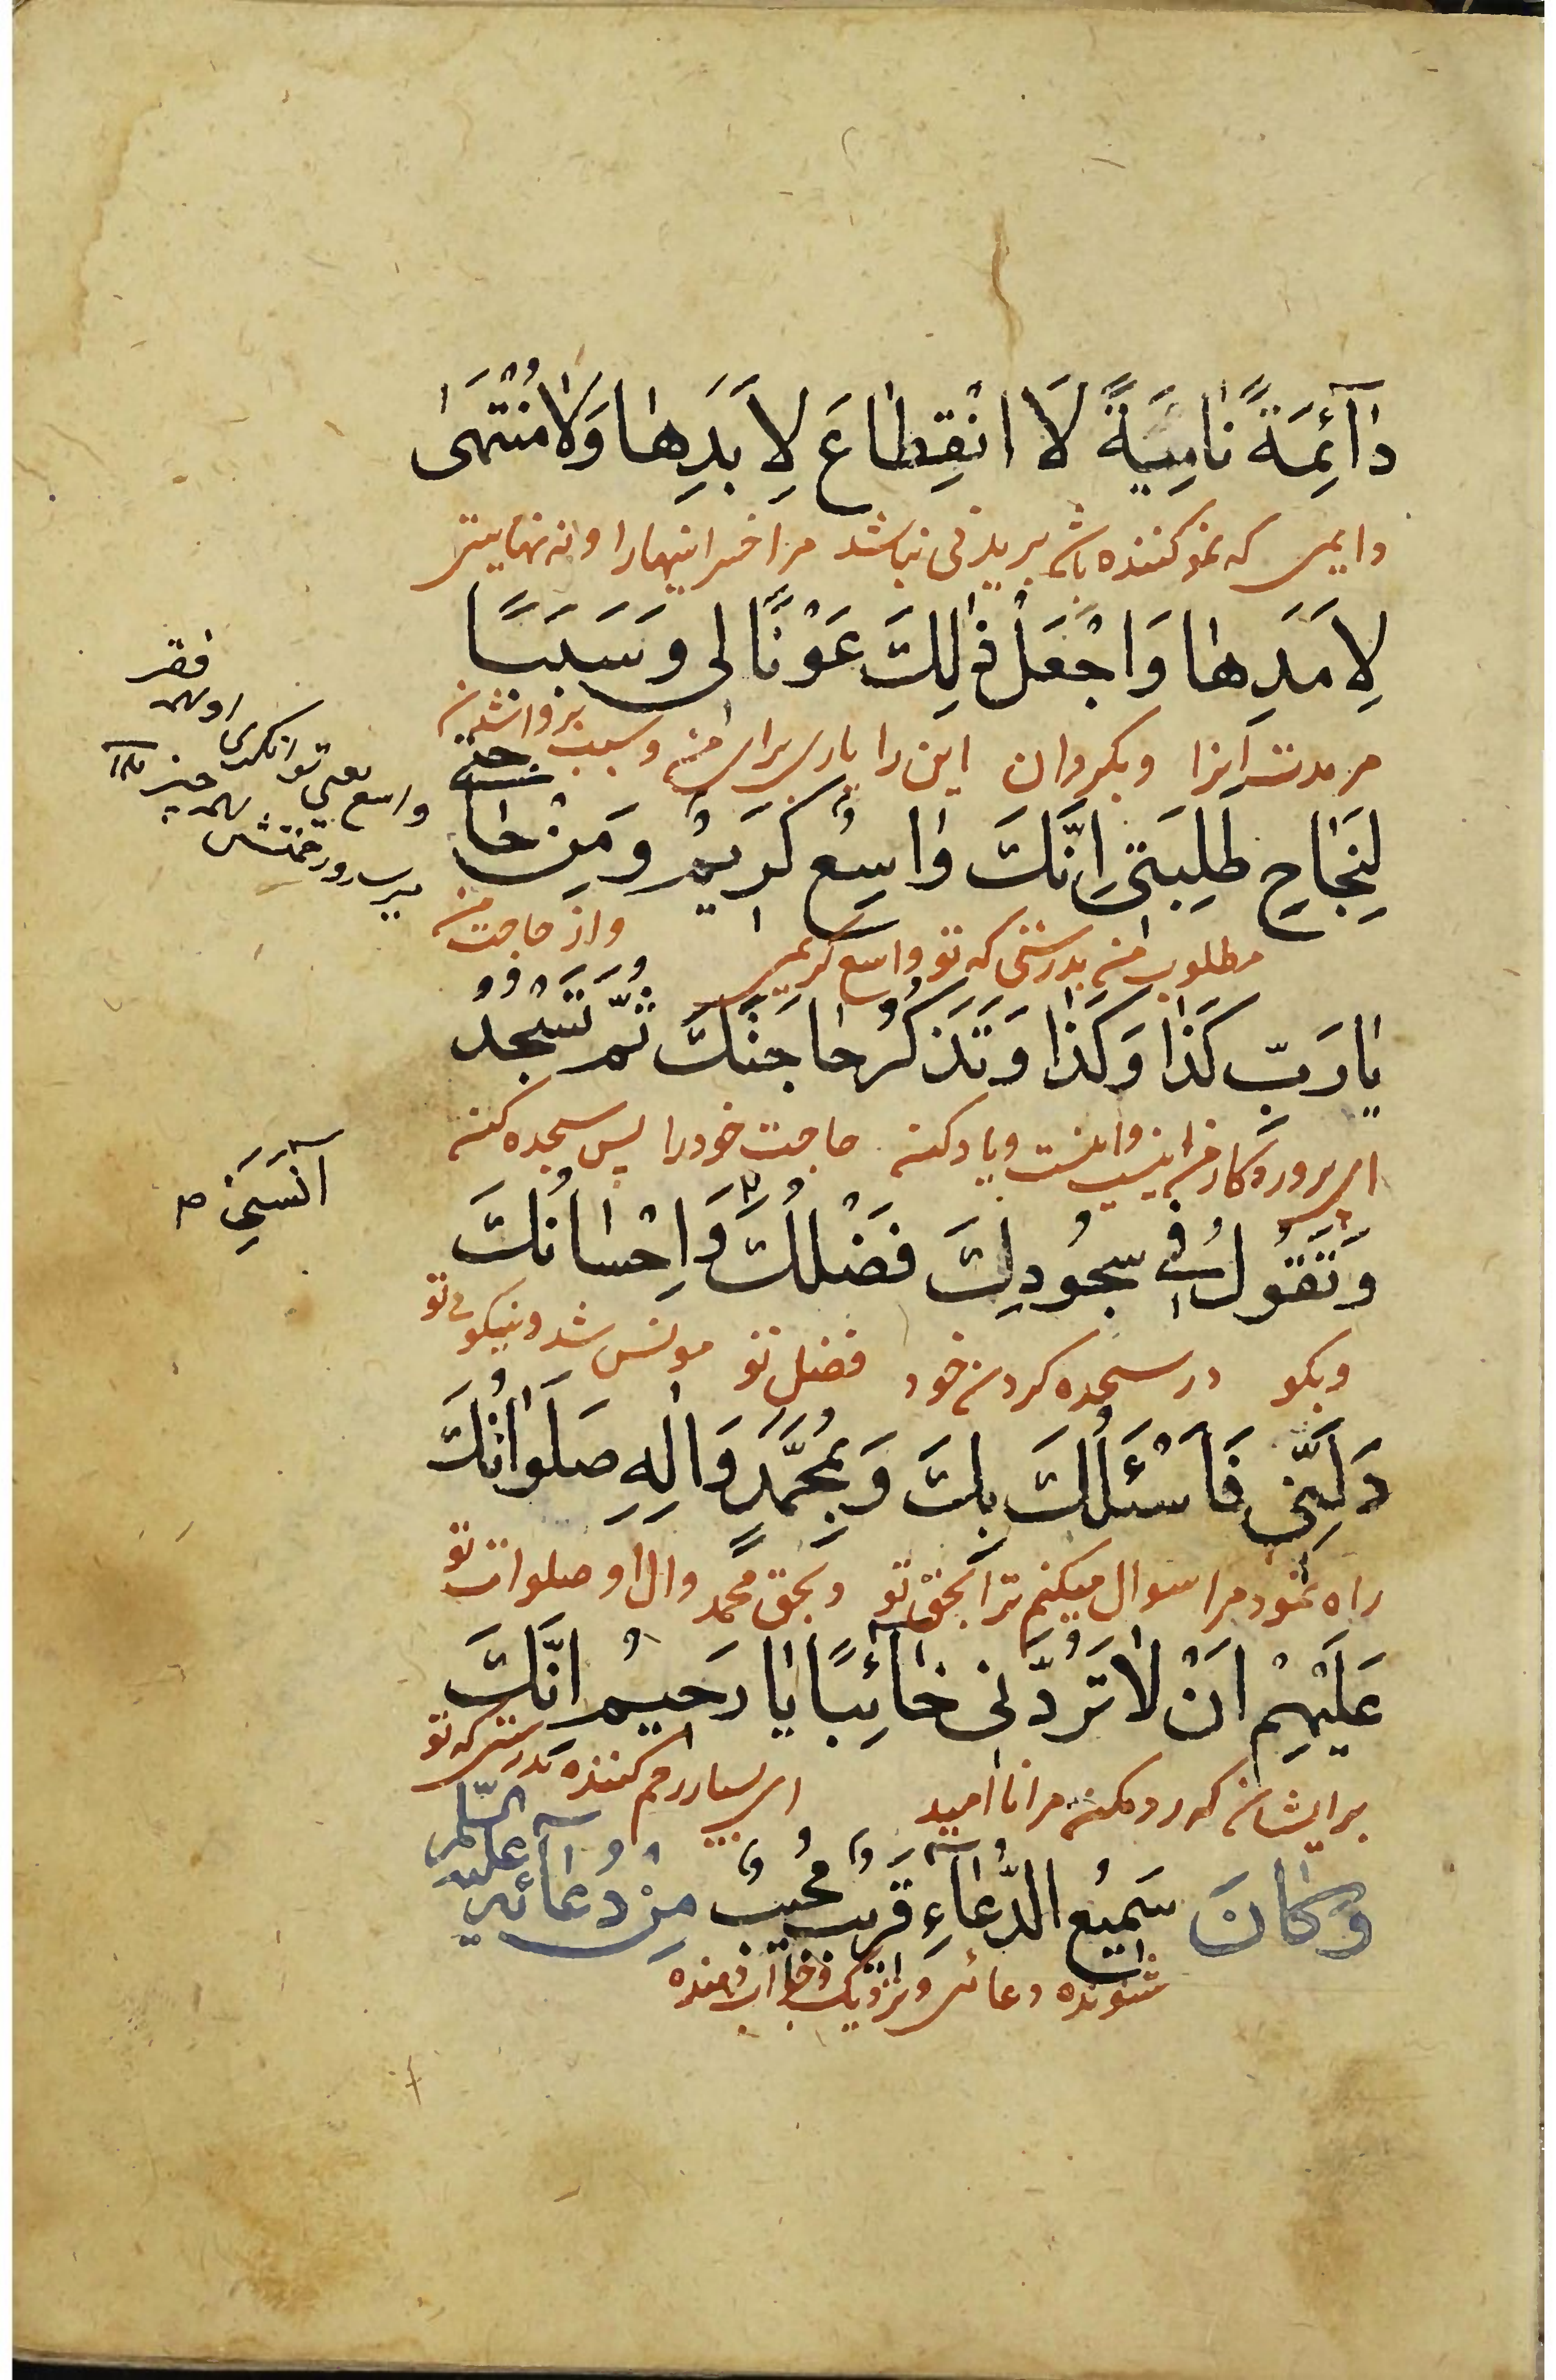 دٰآئِمَةً نٰامِيَةً لَا انْقِطٰاعَ لِاَبَدِهٰا وَلٰا مُنْتَهىٰ
دایمی که نمو کننده باشد بریدنی نباشد مر اخر اینها را و نه نهایتی
لِاَمَدِهٰا وَاجْعَلْ ذٰلِكَ عَوْنًا لى وَسَبَبًا
مر مدت انرا و بگردان این را یاری برای من و سبب بر وا شدن
لِنَجٰاحِ طَلِبَتى اِنَّكَ وٰاسِعٌ كَرٖيمٌ وَمِنْ حٰا
جتى
مطلوب من بدرستی که تو واسع کریمی و از حاجت من
يٰا رَبِّ كَذٰا وَكَذٰا وَتَذْكُرُ حٰاجَتَكَ ثُمَّ تَسْجُدُ
ای پروردگار من اینست و اینست و یاد کن حاجت خود را پس سجده کن
وَتَقُولُ فِى سُجُودِكَ فَضْلُكَ وَاِحْسٰانُكَ
و بگو در سجده کردن خود فضل تو مونس شد و نیکوئی تو
دَلَّنِى فَاَسْئَلُكَ بِكَ وَبِمُحَمَّدٍ وَاٰلِهِ صَلَوٰاتُكَ
راه نمود مرا سوال میکنم ترا بحق تو و بحق محمد و ال او صلوات تو
عَلَيْهِمْ اَنْ لٰا تَرُدَّنى خٰآئِبًا يٰا رَحيمُ اِنَّكَ
بر ایشان که رد مکن مرا نا امید ای بسیار رحم کننده بدرستی که تو
وَكٰانَ سَمٖيعُ الدُّعٰآءِ قَرٖيبٌ مُجيبٌ مِنْ دُعٰآئِهِ عَلَيْهِ السَّلٰم
شنونده دعائی و نزدیک و جواب دهنده
واسع یعنی توانگری او بهر فقر
میرسد و رحمتش بهر چیز
آنَسَنِى